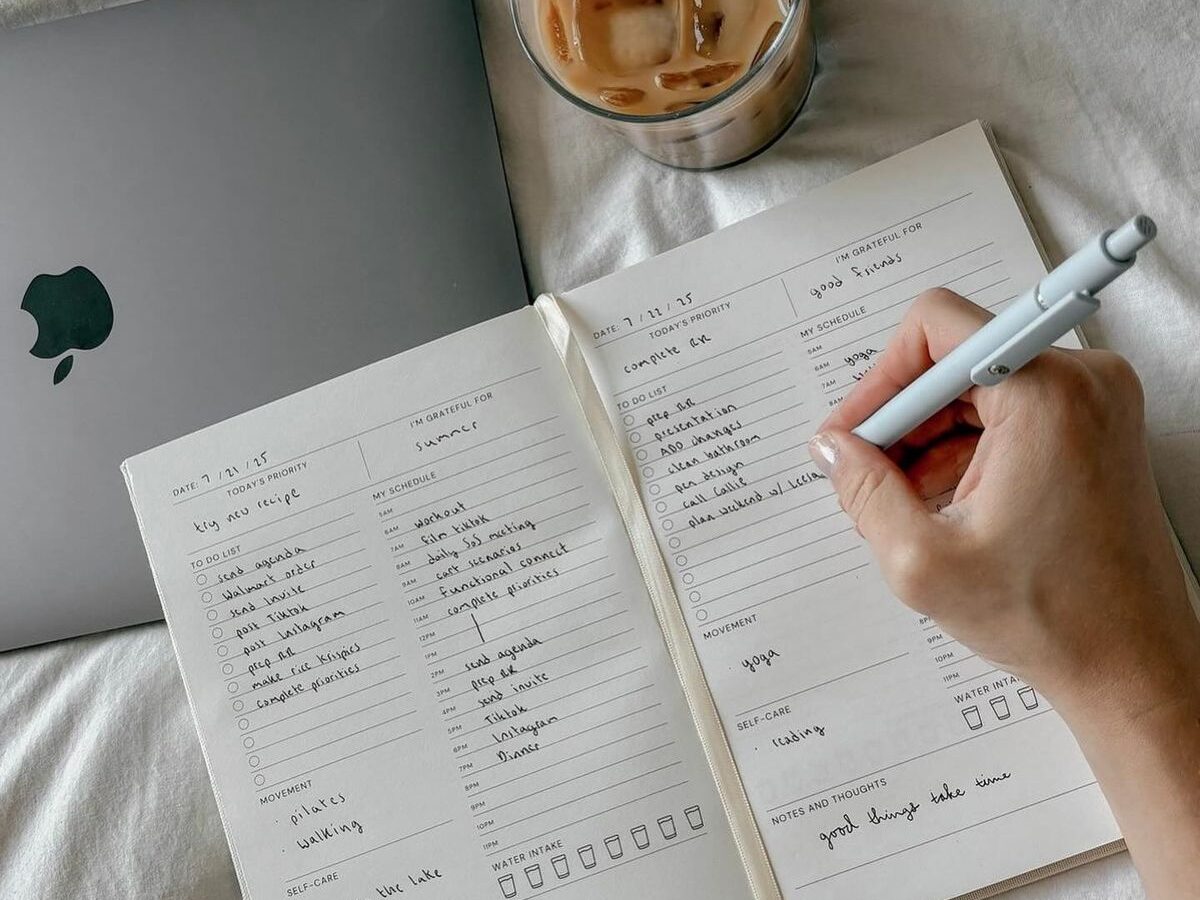 DATE: 7 / 21 / 25
TODAY'S PRIORITY
try new recipe
I'M GRATEFUL FOR
summer
TO DO LIST
send agenda
Walmart order
send Invite
post Tiktok
post Instagram
prep RR
make rice krispies
complete priorities
MOVEMENT
· pilates
· walking
SELF-CARE
the lake
MY SCHEDULE
5AM
6AM workout
7AM film tiktok
8AM daily SoS meeting
9AM cart scenarios
10AM Functional connect
11AM complete priorities
12PM
1PM
2PM send agenda
3PM prep RR
4PM send invite
5PM Tiktok
6PM Instagram
7PM Dinner
8PM
9PM
10PM
11PM
WATER INTAKE
DATE: 7 / 22 / 25
TODAY'S PRIORITY
complete RR
I'M GRATEFUL FOR
good friends
TO DO LIST
prep RR
presentation
ADO changes
clean bathroom
pen design
call Callie
plan weekend w/
MOVEMENT
· yoga
SELF-CARE
· reading
MY SCHEDULE
5AM
6AM yoga
7AM
8AM
9PM
10PM
11PM
WATER INTAKE
NOTES AND THOUGHTS
good things take time